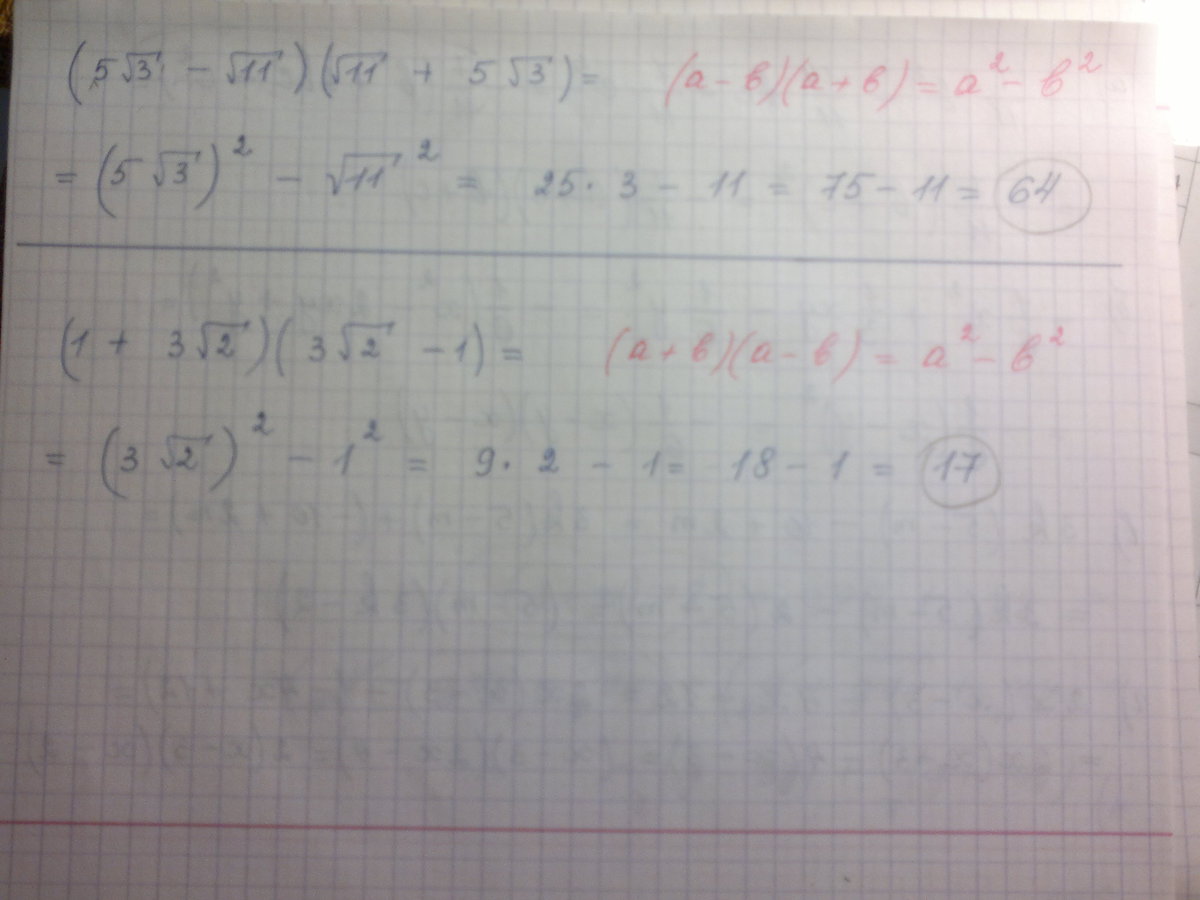 (5√3 - √11)(√11 + 5√3) = (a - b)(a + b) = a² - b²
= (5√3)² - √11² = 25 · 3 - 11 = 75 - 11 = 64
(1 + 3√2)(3√2 - 1) = (a + b)(a - b) = a² - b²
= (3√2)² - 1² = 9 · 2 - 1 = 18 - 1 = 17